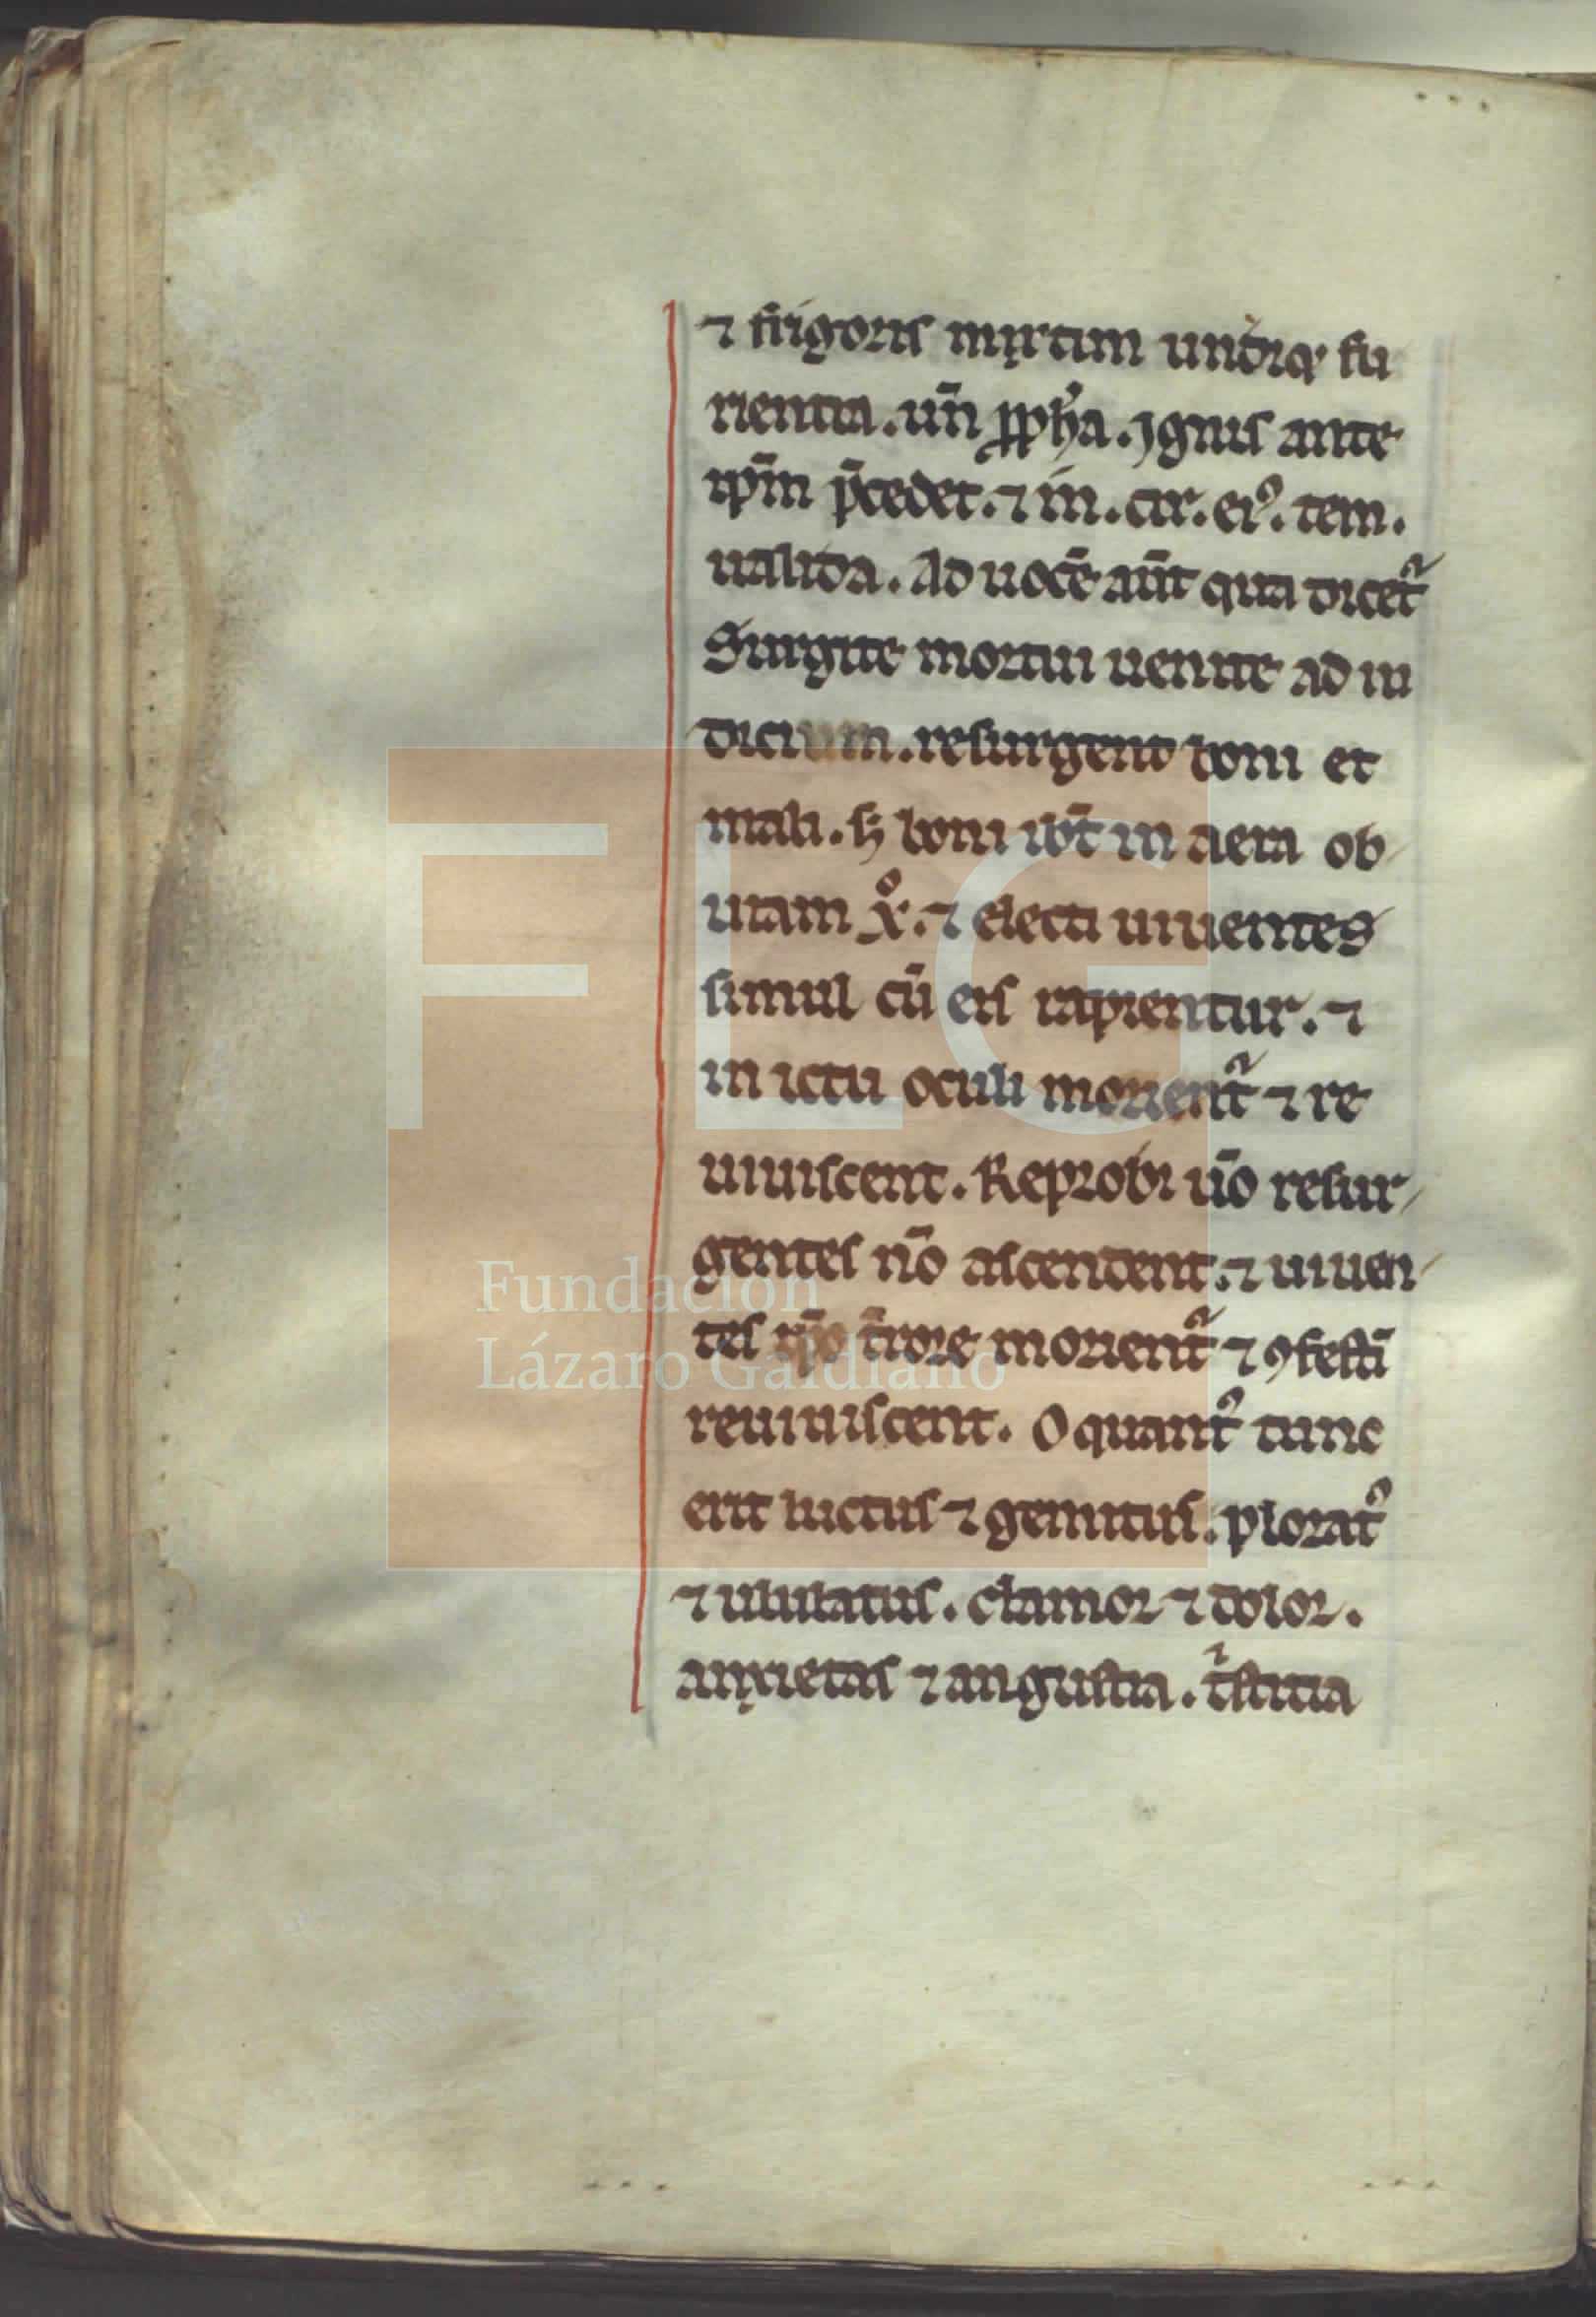 ⁊ frigoris mixtim undiq; fu
rientia. un̄ ꝓph̓a. Ignis ante
ip̄m p̄cedet. ⁊ in. cir. ei᾿. tem.
ualida. Ad uocē aūt qua dicet᷑
Surgite mortui uenite ad iu
dicium. resurgent boni et
mali. s; boni ibūt in aera ob
uiam xº. ⁊ electi uiuentes
simul cū eis rapientur. ⁊
in ictu oculi morient᷑ ⁊ re
uiuiscent. Reprobi ūo resur-
gentes nō ascendent. ⁊ uiuen-
tes ip̄o t̄rore morient᷑ ⁊ ꝯfestī
reuiuiscent. O quant᾿ tunc
erit luctus ⁊ gemitus. plorat᾿
⁊ ululatus. clamor ⁊ dolor.
anxietas ⁊ angustia. tⁱsticia
FLG
Fundación
Lázaro Galdiano